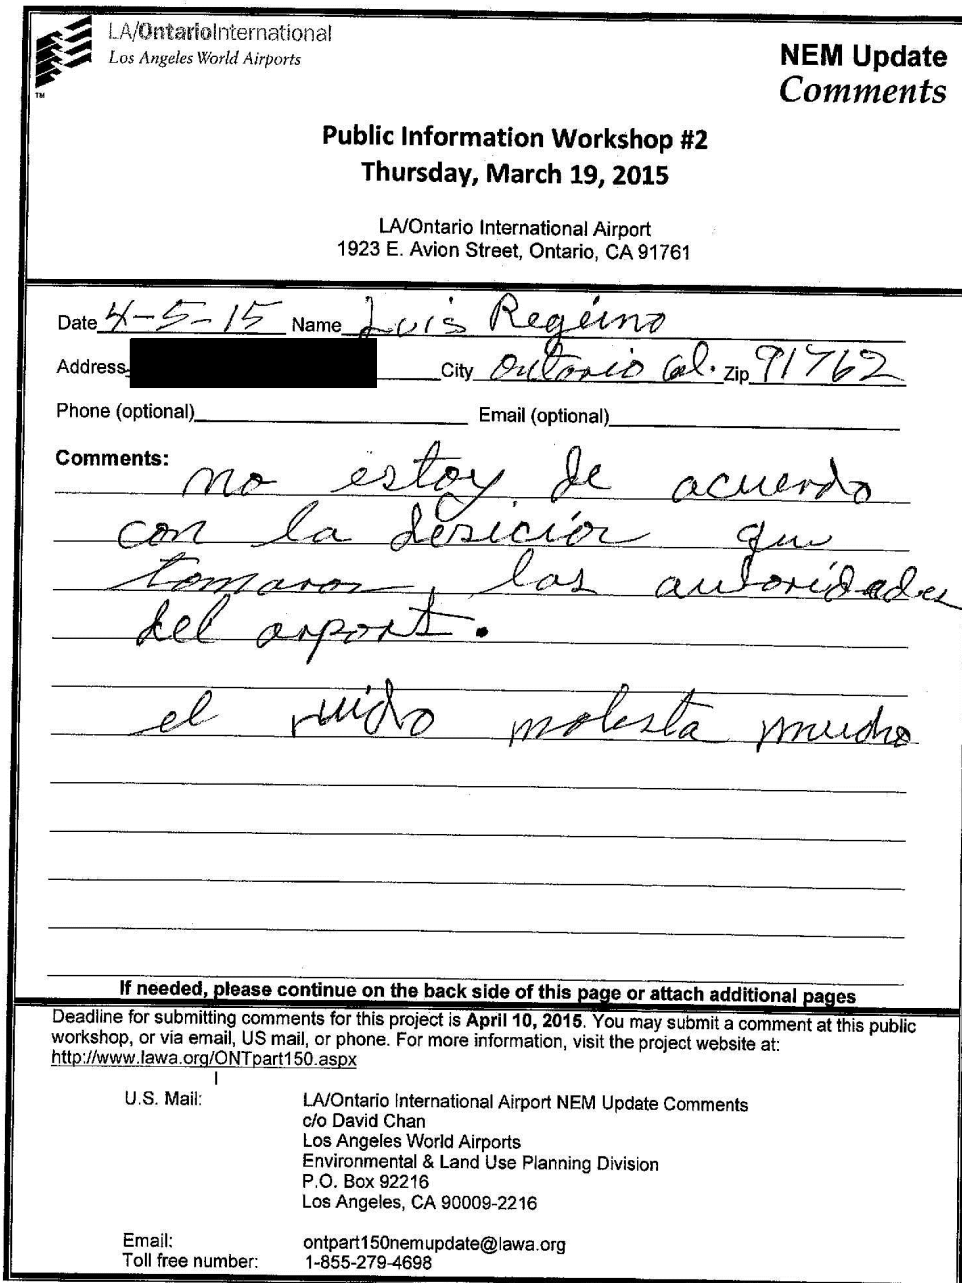 LA/OntarioInternational
Los Angeles World Airports
TM
NEM Update
Comments
Public Information Workshop #2
Thursday, March 19, 2015
LA/Ontario International Airport
1923 E. Avion Street, Ontario, CA 91761
Date 4-5-15 Name Luis Regeino
Address City Ontario Cal. Zip 91762
Phone (optional) Email (optional)
Comments:
no estoy de acuerdo
con la desición que
tomaron, las autoridades
del arport.
el ruido molesta mucho
If needed, please continue on the back side of this page or attach additional pages
Deadline for submitting comments for this project is April 10, 2015. You may submit a comment at this public
workshop, or via email, US mail, or phone. For more information, visit the project website at:
http://www.lawa.org/ONTpart150.aspx
U.S. Mail: LA/Ontario International Airport NEM Update Comments
c/o David Chan
Los Angeles World Airports
Environmental & Land Use Planning Division
P.O. Box 92216
Los Angeles, CA 90009-2216
Email: ontpart150nemupdate@lawa.org
Toll free number: 1-855-279-4698